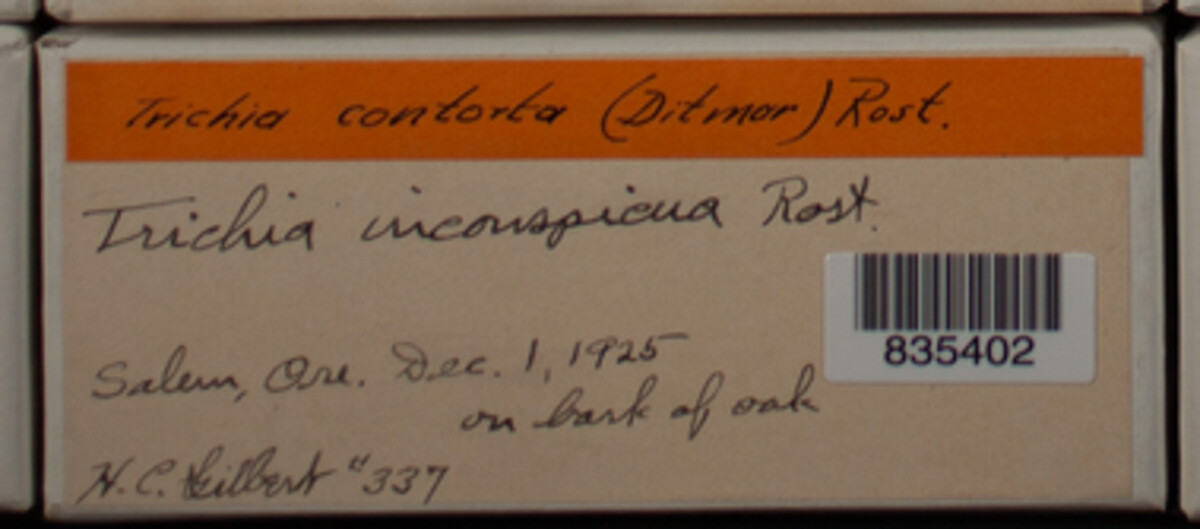 Trichia contorta (Ditmar) Rost.
Trichia inconspicua Rost.
835402
Salem, Ore. Dec. 1, 1925
on bark of oak
H. C. Gilbert #337